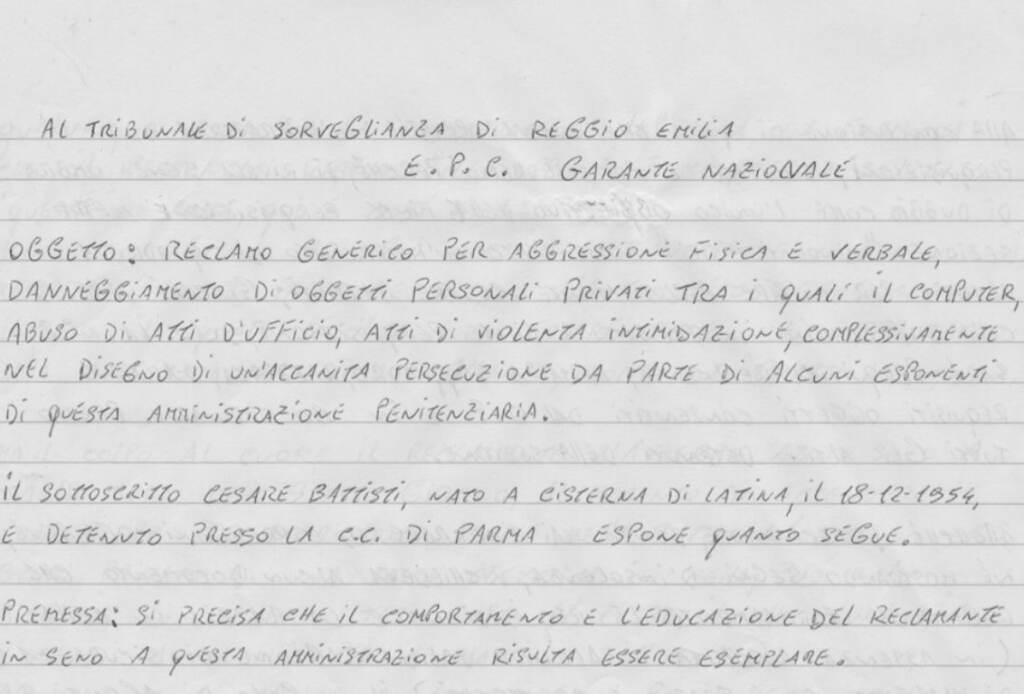 AL TRIBUNALE Di SORVEGLIANZA Di REGGIO EMILIA
E. P. C. GARANTE NAZIONALE
OGGETTO: RECLAMO GENERICO PER AGGRESSIONE FISICA E VERBALE,
DANNEGGIAMENTO DI OGGETTI PERSONALI PRIVATI TRA i QUALI IL COMPUTER,
ABUSO DI ATTI D'UFFICIO, ATTI DI VIOLENTA INTIMIDAZIONE, COMPLESSIVAMENTE
NEL DISEGNO DI UN'ACCANITA PERSECUZIONE DA PARTE DI ALCUNI ESPONENTI
DI QUESTA AMMINISTRAZIONE PENITENZIARIA.
IL SOTTOSCRITTO CESARE BATTISTI, NATO A CISTERNA DI LATINA, IL 18-12-1954,
E DETENUTO PRESSO LA C.C. DI PARMA ESPONE QUANTO SEGUE.
PREMESSA: Si PRECISA CHE IL COMPORTAMENTO E L'EDUCAZIONE DEL RECLAMANTE
IN SENO A QUESTA AMMINISTRAZIONE RISULTA ESSERE ESEMPLARE.